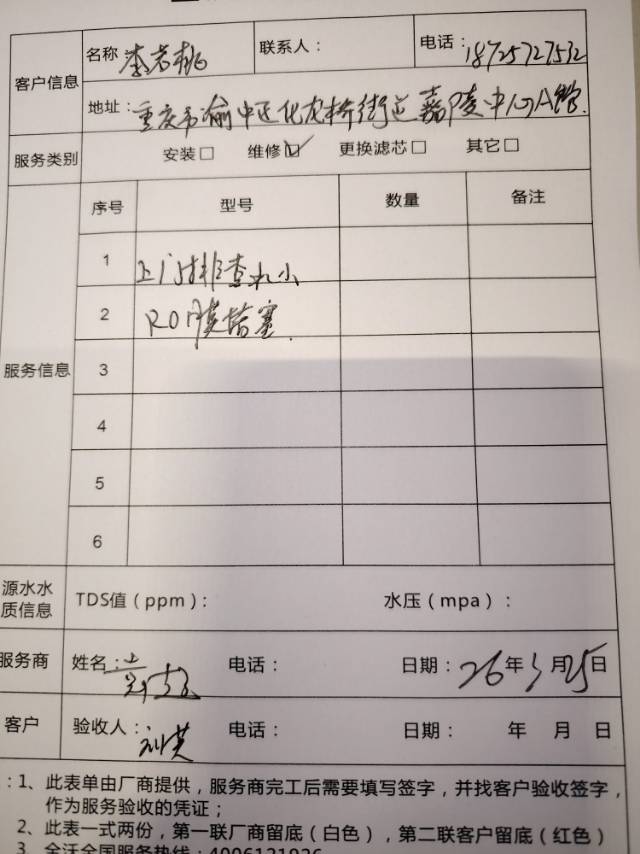 客户信息 名称 李若桃 联系人： 电话：18725727532
地址：重庆市渝中区化龙桥街道嘉陵中心A馆.
服务类别 安装□ 维修☑ 更换滤芯□ 其它□
服务信息 序号 型号 数量 备注
1 上门排查水小
2 RO膜堵塞.
3
4
5
6
源水水质信息 TDS值（ppm）： 水压（mpa）：
服务商 姓名： 电话： 日期：26年3月25日
客户 验收人：刘英 电话： 日期： 年 月 日
：1、此表单由厂商提供，服务商完工后需要填写签字，并找客户验收签字，
作为服务验收的凭证；
2、此表一式两份，第一联厂商留底（白色），第二联客户留底（红色）
3、全沃全国服务热线：4006121926